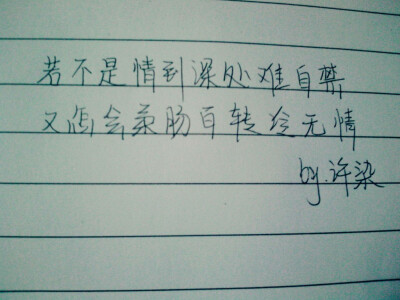 若不是情到深处难自禁
又怎会柔肠百转冷无情
by.许染